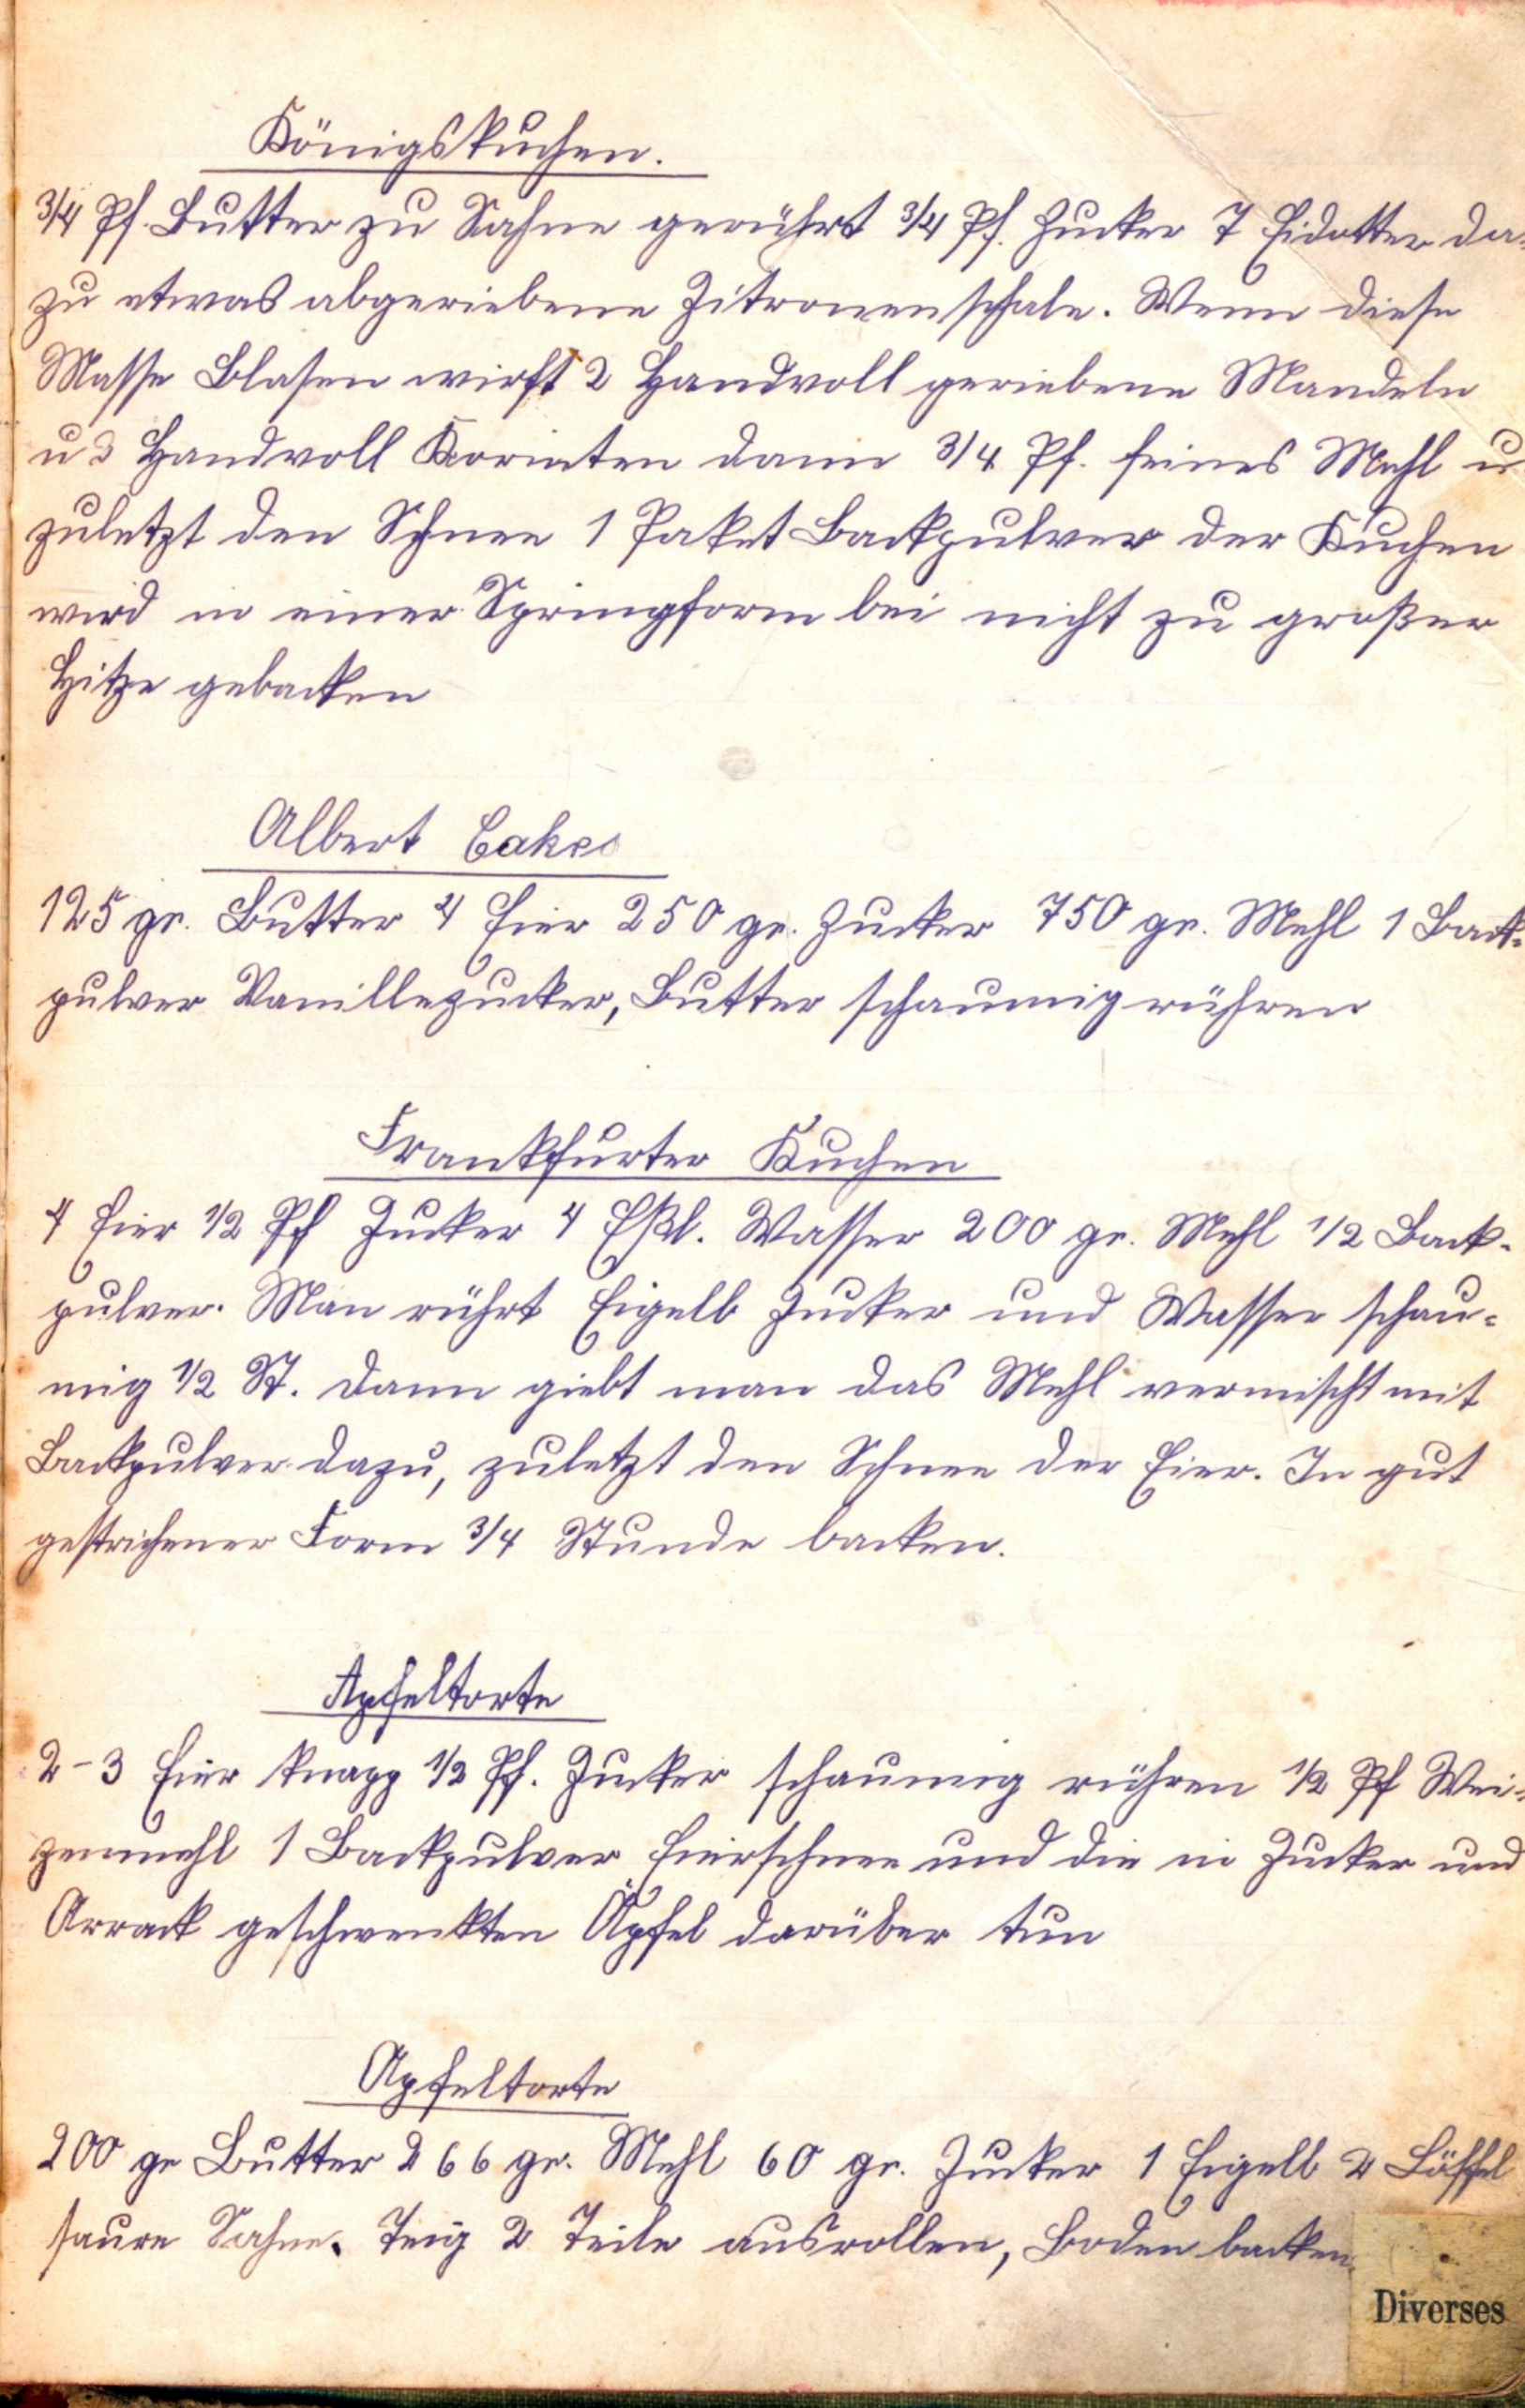 Königskuchen.
3/4 Pf. Butter zu Sahne gerührt 3/4 Pf. Zucker 7 Eidotter da-
zu etwas abgeriebene Zitronenschale. Wenn diese
Masse Blasen wirft 2 Handvoll geriebene Mandeln
u 3 Handvoll Korinten dann 3/4 Pf. feines Mehl u
zuletzt den Schnee 1 Paket Backpulver der Kuchen
wird in einer Springform bei nicht zu großer
Hitze gebacken
Albert Cakes
125 gr. Butter 4 Eier 250 gr. Zucker 750 gr. Mehl 1 Back-
pulver Vanillezucker, Butter schaumig rühren
Frankfurter Kuchen
4 Eier 1/2 Pf Zucker 4 Eßl. Wasser 200 gr. Mehl 1/2 Back-
pulver. Man rührt Eigelb Zucker und Wasser schau-
mig 1/2 St. dann giebt man das Mehl vermischt mit
Backpulver dazu, zuletzt den Schnee der Eier. In gut
gestrichener Form 3/4 Stunde backen.
Apfeltorte
2-3 Eier knapp 1/2 Pf. Zucker schaumig rühren 1/2 Pf Wei-
zenmehl 1 Backpulver Eierschnee und die in Zucker und
Arrack geschwenkten Äpfel darüber tun
Apfeltorte
200 gr Butter 266 gr. Mehl 60 gr. Zucker 1 Eigelb 2 Löffel
saure Sahne. Teig 2 Teile ausrollen, Boden backen.
Diverses